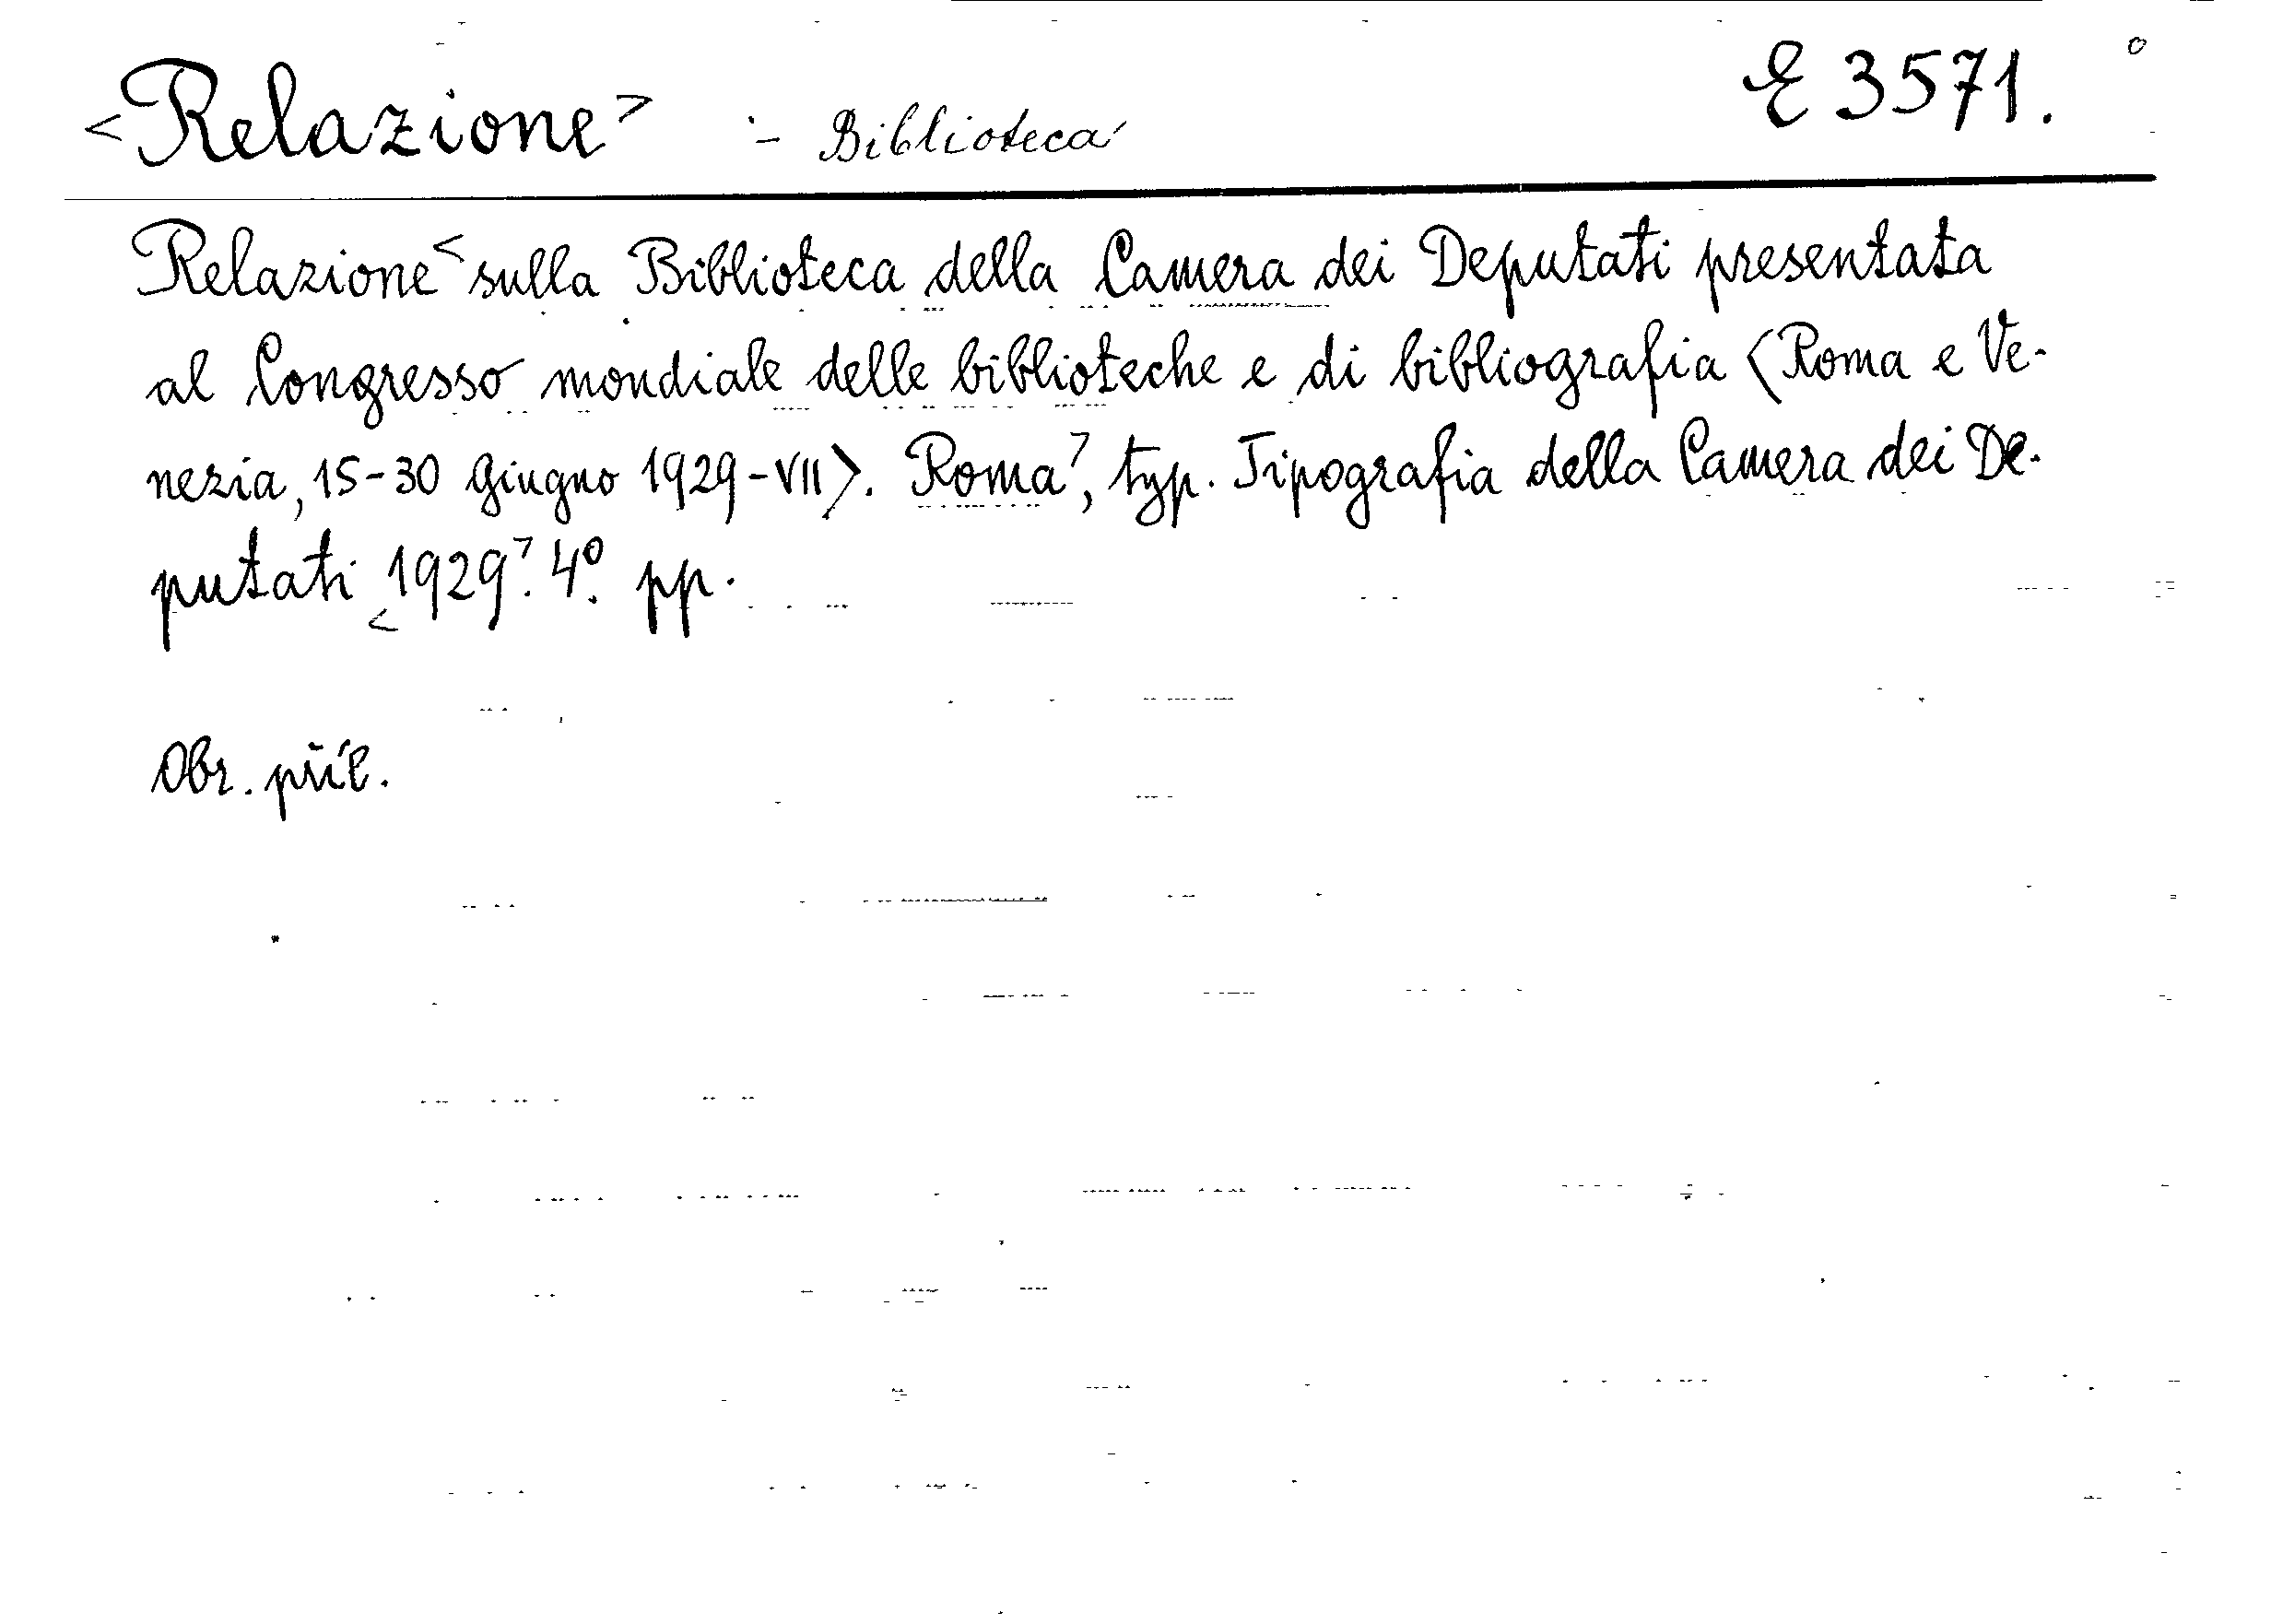 <Relazione> :- Biblioteca E 3571.
Relazione < sulla Biblioteca della Camera dei Deputati presentata
al Congresso mondiale delle biblioteche e di bibliografia (Roma e Ve-
nezia, 15-30 Giugno 1929-VII). Roma>, typ. Tipografia della Camera dei De-
putati <1929>. 4º. pp.
Obr. příl.